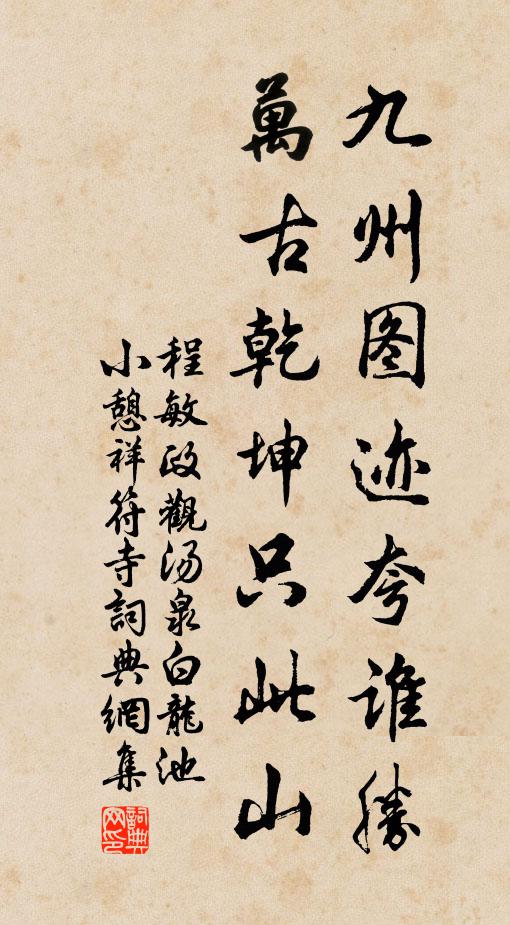 九州图迹夸谁勝
萬古乾坤只此山
程敏政觀汤泉白龍池
小憩祥符寺詞典網集
詞典网印